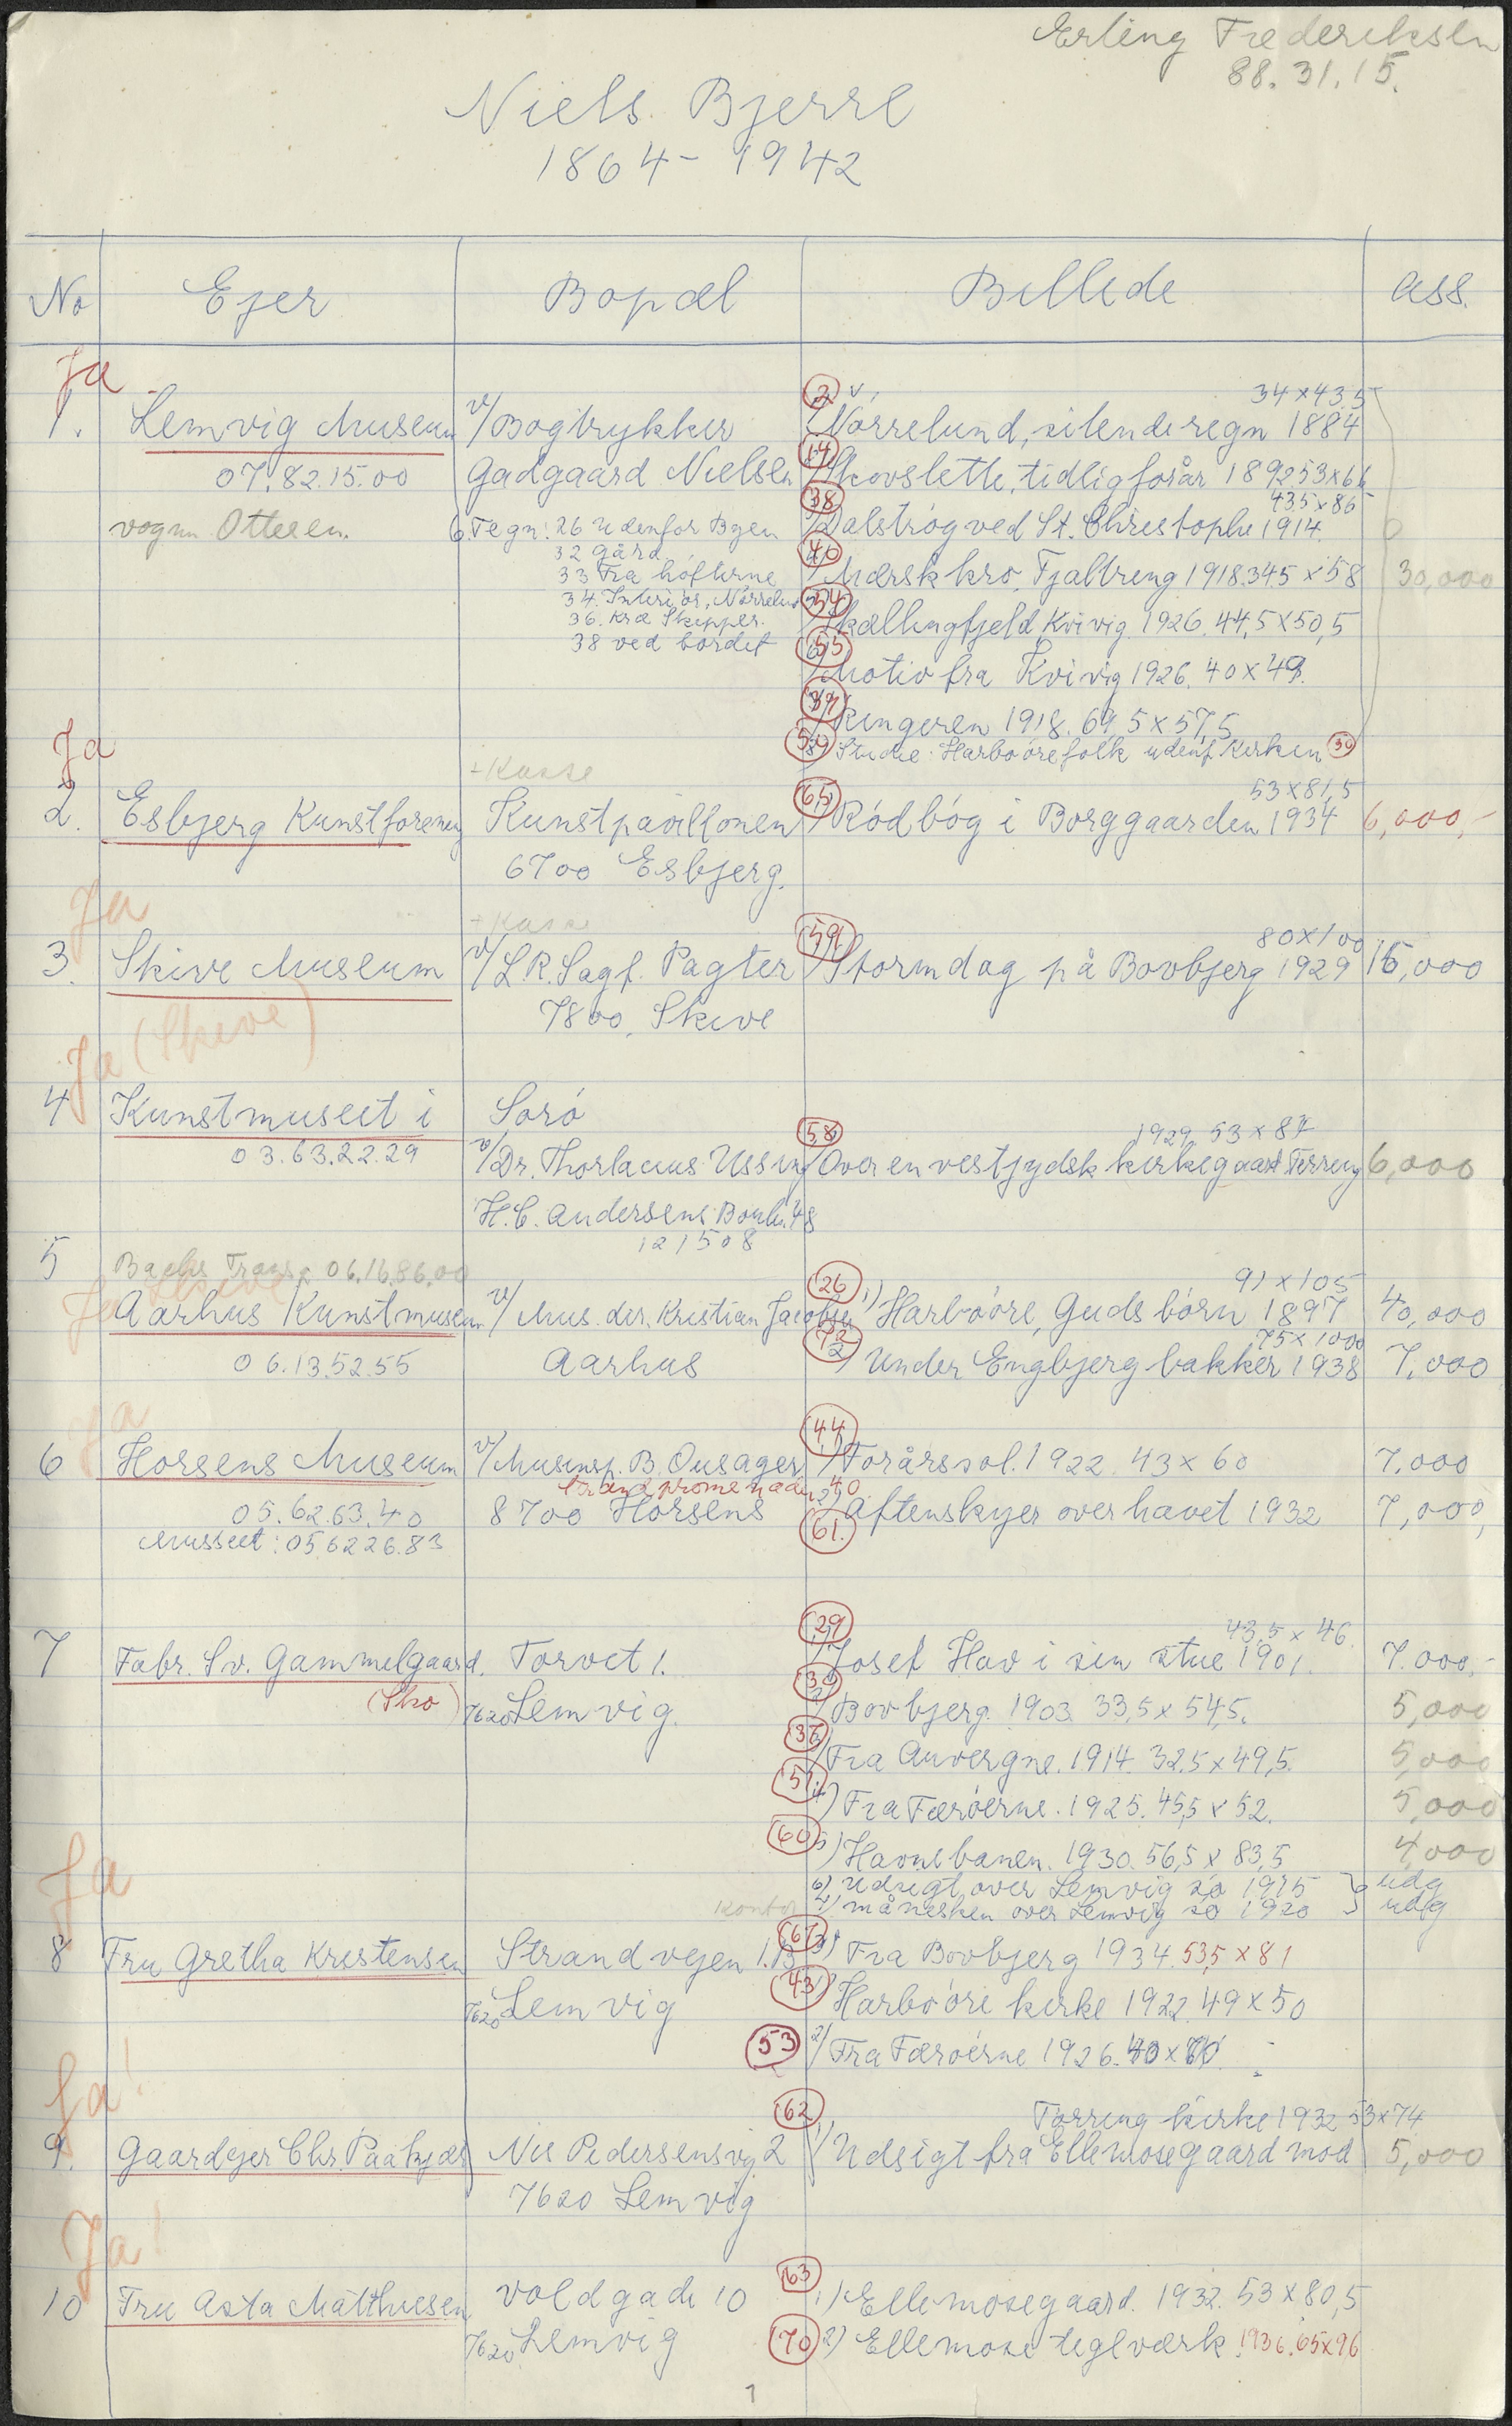 Erling Frederiksen
88.31.15.
Niels Bjerre
1864 - 1942
No Ejer Bopæl Billede Ass.
Ja
34 x 43,5
1. Lemvig Museum v/Bogtrykker (2) Nørrelund, silende regn 1884
07.82.15.00 Gadgaard Nielsen (14) Skovslette, tidlig forår 1892 53x66
43,5 x 86
vognm Ottesen. 6. Tegn: 26 udenfor Byen (38) Dalstrøg ved St. Christophe 1914.
32 gård
33 Fra hofterne (40) Mærsk kro, Fjaltreng 1918. 345 x 58 30,000
34. Interiør, Nørrelund
36. Kræ Skipper. (54) Skællingfjeld Kvivig 1926. 44,5 x 50,5
38 ved bordet (55) Motiv fra Kvivig 1926. 40 x 49.
Ringeren 1918. 69,5 x 57,5
Ja
(59) Studie: Harboørefolk udenf. Kirken (30)
+ Kasse
53 x 81,5
2. Esbjerg Kunstforening Kunstpavillonen (65) Rødbøg i Borggaarden 1934 6,000,-
6700 Esbjerg.
Ja
+ Kasse
80 x 100
3. Skive Museum v/ L.R. Sagf. Pagter (59) Stormdag på Bovbjerg 1929 15,000
7800. Skive
Ja (Skive)
4 Kunstmuseet i Sorø
1929 53 x 87
03.63.22.29 v/Dr. Thorlacius Ussing (58) Over en vestjydsk kirkegaard Ferring 6,000
H.C. Andersens Boul. 48
121508
5 06.16.86.00
Ja Skive
91 x 105
Aarhus Kunstmuseum v/ Mus. dir. Kristian Jacobsen (26) 1) Harboøre, Guds børn 1897 40,000
75 x 1000
06.13.52.55 Aarhus (72) 2) Under Engbjerg bakker 1938 7,000
Ja
6 Horsens Museum v/Musinsp. B. Ousager (44) 1) Forårssol. 1922. 43 x 60 7.000
Strandpromenaden 40
05.62.63.40 8700 Horsens (61.) 2) Aftenskyer over havet 1932 7,000,
Musseet: 05 6226.83
43,5 x 46.
7 Fabr. Sv. Gammelgaard. Torvet 1. (29) 1) Josef Hav i sin stue 1901. 7.000,-
(Sko) 7620 Lemvig. (30) 2) Bovbjerg. 1903. 33,5 x 54,5. 5,000
(37) Fra Auvergne. 1914. 32,5 x 49,5. 5,000
(51.) 4) Fra Færøerne. 1925. 45,5 x 52. 5,000
(60) 5) Havnebanen. 1930. 56,5 x 83,5 4,000
6) Udsigt over Lemvig sø 1915 } udg
kontor 7) måneskin over Lemvig sø 1920 } udg
Ja
8 Fru Gretha Kristensen Strandvejen 1.B (67) 3) Fra Bovbjerg 1934. 53,5 x 81
7620 Lemvig (43) Harboøre kirke 1922. 49 x 50
(53) 2) Fra Færøerne 1926.
Ja!
Tørring kirke 1932 53 x 74
9. Gaardejer Chr. Paakjær Nis Pedersensvej 2 (62) 1) Udsigt fra Ellemosegaard mod 5,000
7620 Lemvig
Ja!
10 Fru Asta Matthiesen Voldgade 10 (63) 1) Ellemosegaard. 1932. 53 x 80,5
7620 Lemvig (70) 2) Ellemose teglværk. 1936. 65x96
1